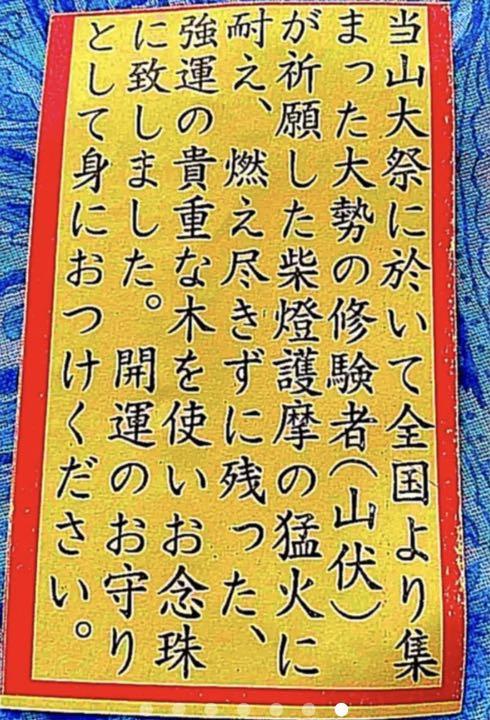 当山大祭に於いて全国より集
まった大勢の修験者（山伏）
が祈願した柴燈護摩の猛火に
耐え、燃え尽きずに残った、
強運の貴重な木を使いお念珠
に致しました。開運のお守り
として身におつけください。